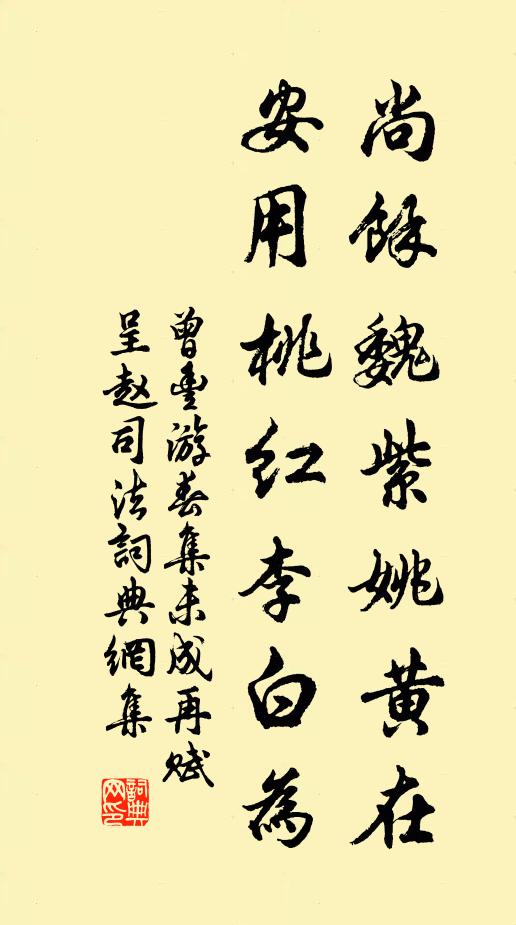 尚餘魏紫姚黄在
安用桃紅李白為
曾豐游春集未成再赋
呈赵司法詞典網集
詞典
网印